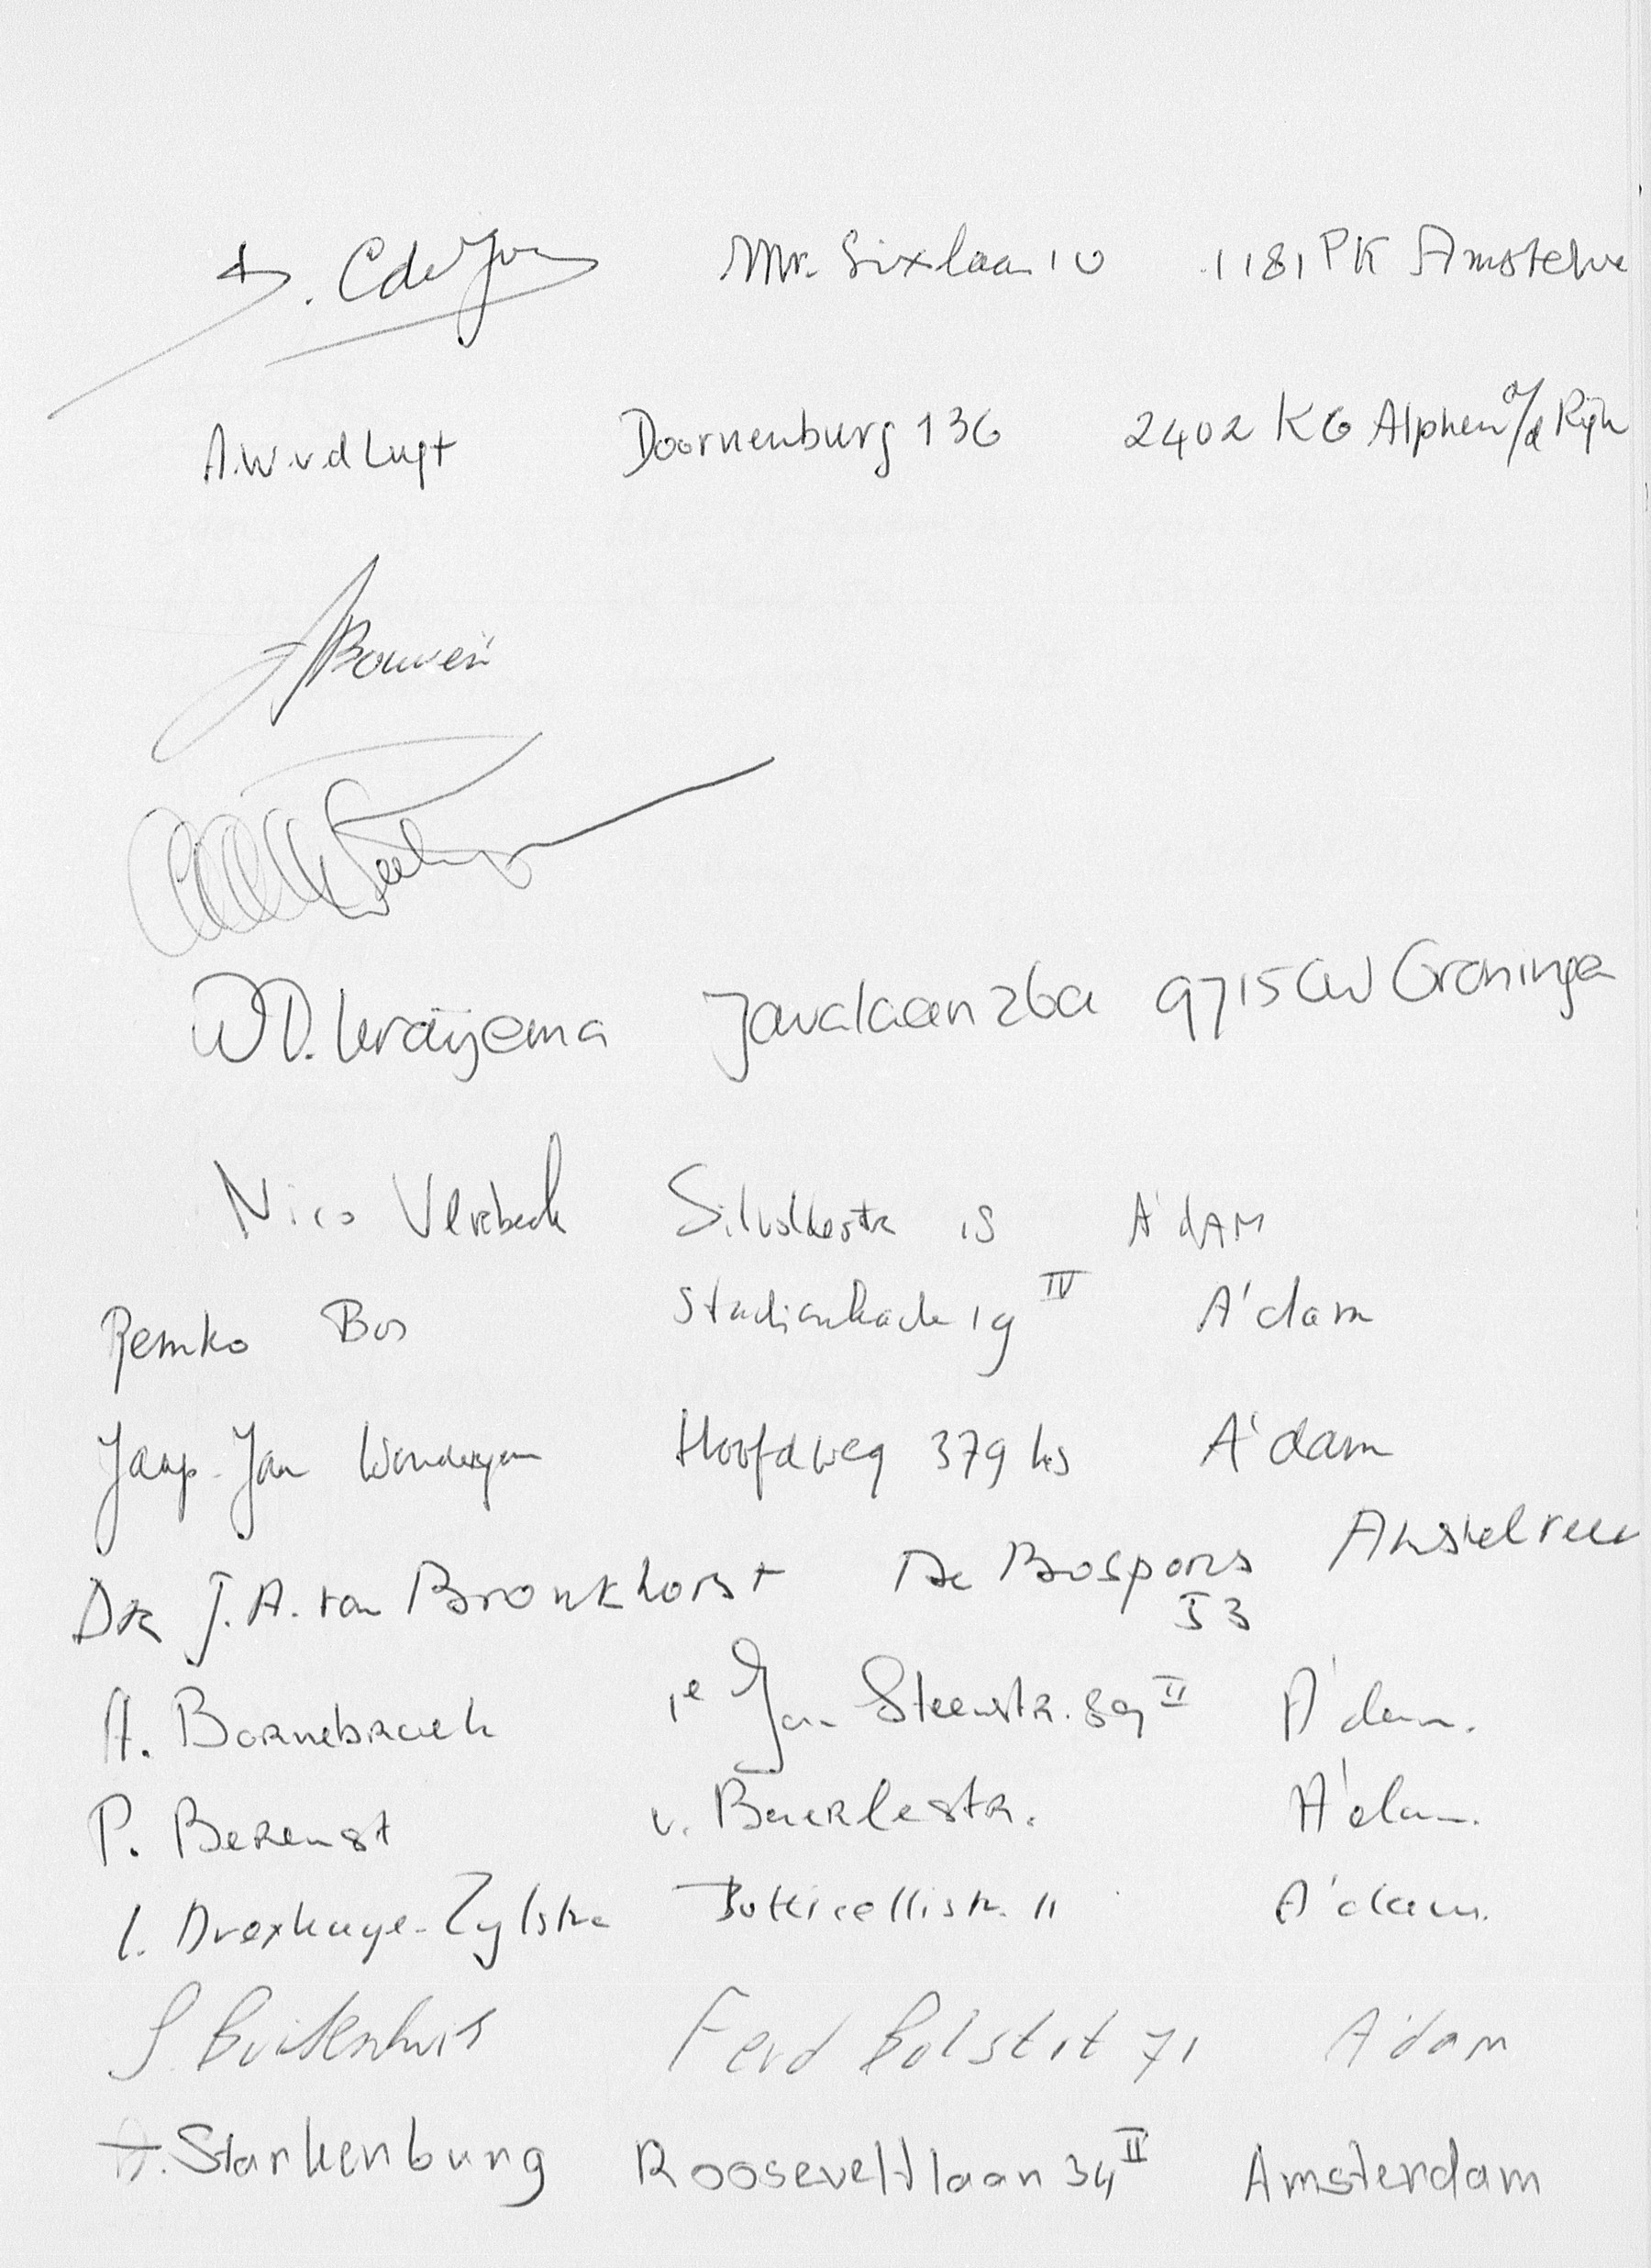 C de Jong Mr. Sixlaan 10 1181 PK Amstelve
A.W. v.d Lugt Doornenburg 136 2402 KG Alphen a/d Rijn
Bouwer
W D. Kraijema Javalaan 26a 9715 CW Groningen
Nico 15 A'dAM
Remko Bos Stadionkade 19 IV A'dam
Jaap-Jan Hoofdweg 379 hs A'dam
Drs J.A. van Bronkhorst De Bosporus Amstelveen
53
A. 1e Jan Steenstr. 89 II A'dam.
P. Berenst v. Baerlestr. A'dam.
I. Drexhage-Zylstra Botticellistr. 11 A'dam.
S. Buitenhuis Ferd Bolstrt 71 A'dam
Starkenburg Rooseveltlaan 34 II Amsterdam